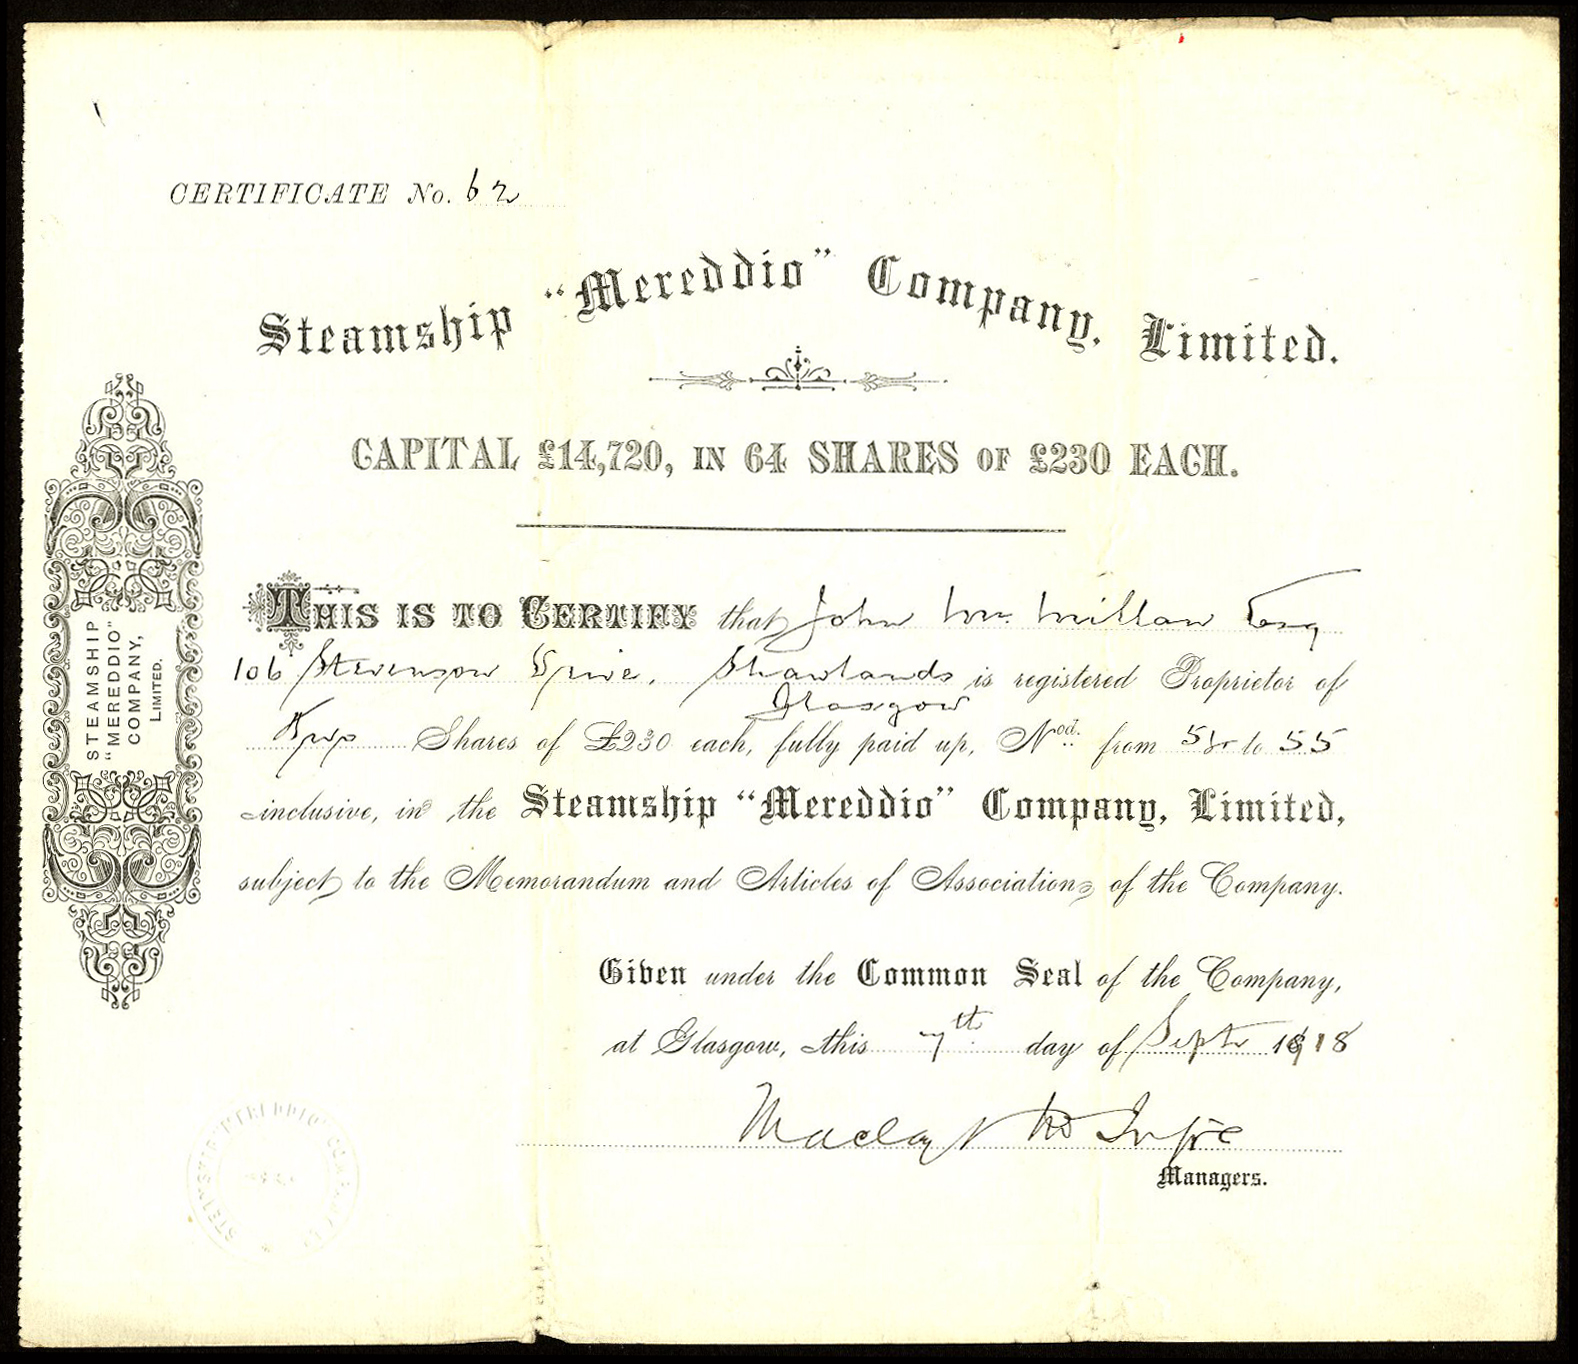 CERTIFICATE No. 62
Steamship "Mereddio" Company, Limited.
CAPITAL £14,720, IN 64 SHARES OF £230 EACH.
STEAMSHIP
"MEREDDIO"
COMPANY,
LIMITED.
THIS IS TO CERTIFY that John McMillan Esq
106 Stevenson Drive, Shawlands is registered Proprietor of
Glasgow
Two Shares of £230 each, fully paid up, Nod. from 54 to 55
inclusive, in the Steamship "Mereddio" Company, Limited,
subject to the Memorandum and Articles of Association of the Company.
Given under the Common Seal of the Company,
at Glasgow, this 7th day of Septr 1918
Maclay & McIntyre
Managers.